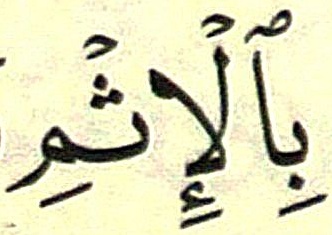 بِٱلْإِثْمِ